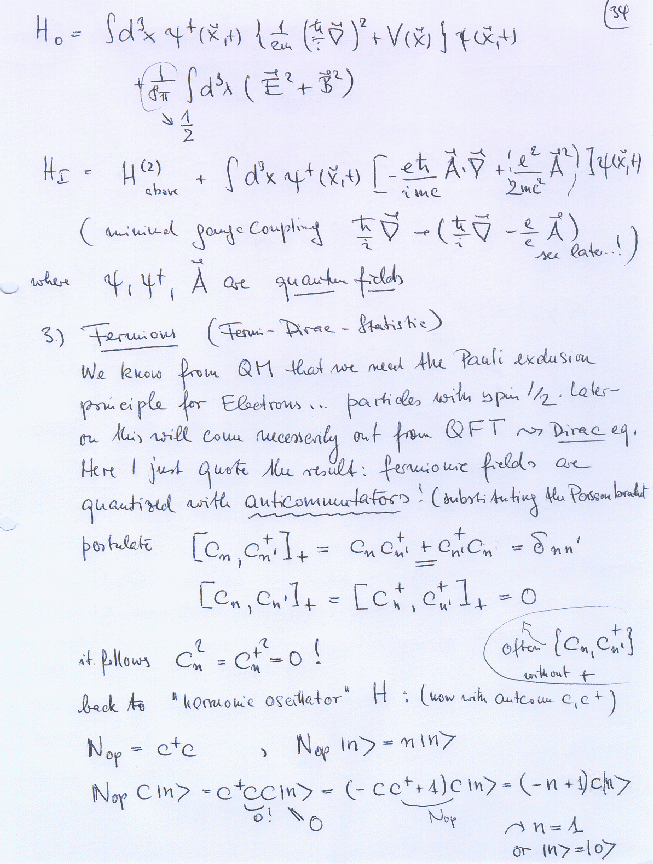 34
H₀ = ∫d³x ψ⁺(x⃗,t) { 1/2m (ħ/i ∇⃗)² + V(x⃗) } ψ(x⃗,t)
+ 1/8π ∫d³x ( E⃗² + B⃗² )
↘ 1/2
H_I = H^(2) above + ∫d³x ψ⁺(x⃗,t) [ -eħ/imc A⃗·∇⃗ + (e²/2mc² A⃗²) ] ψ(x⃗,t)
( minimal gauge coupling ħ/i ∇⃗ → (ħ/i ∇⃗ - e/c A⃗) see later..! )
where ψ, ψ⁺, A⃗ are quantum fields
3.) Fermions (Fermi-Dirac-Statistic)
We know from QM that we need the Pauli exclusion
principle for Electrons... particles with spin 1/2. Later-
on this will come necessarily out from QFT ⇝ Dirac eq.
Here I just quote the result: fermionic fields are
quantized with anticommutators! (substituting the Poisson bracket
postulate [Cn, Cn'⁺]₊ = Cn Cn'⁺ + Cn'⁺ Cn = δnn'
[Cn, Cn']₊ = [Cn⁺, Cn'⁺]₊ = 0
often {Cn, Cn'⁺}
without +
it follows Cn² = Cn⁺² = 0 !
back to "harmonic oscillator" H : (now with anticomm c, c⁺)
Nop = c⁺c , Nop |n> = n|n>
Nop c|n> = c⁺cc|n> = (-cc⁺+1) c|n> = (-n+1)c|n>
0! 0 Nop
⇝ n = 1
or |n> = |0>